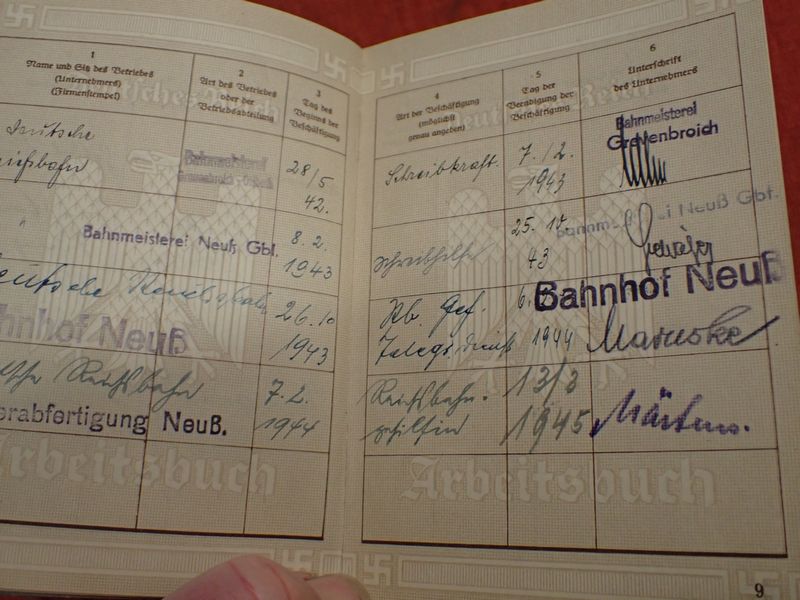 1
Name und Sitz des Betriebes
(Unternehmers)
(Firmenstempel)
2
Art des Betriebes
oder der
Betriebsabteilung
3
Tag des
Beginns der
Beschäftigung
Deutsche
Reichsbahn
Bahnmeisterei
28/5
42.
Bahnmeisterei Neuß Gbf.
8. 2.
1943
Deutsche Reichsbahn
Bahnhof Neuß
26.10
1943
Reichsbahn
erabfertigung Neuß.
7. 2.
1944
Arbeitsbuch
4
Art der Beschäftigung
(möglichst
genau angeben)
5
Tag der
Beendigung der
Beschäftigung
6
Unterschrift
des Unternehmers
Schreibkraft.
7./2.
1943
Bahnmeisterei
Grevenbroich
Schreibhilfe
25. 10
43
Neuß Gbf.
Rb. Gef.
6.
1944
Bahnhof Neuß
Maruske
Reichsbahn-
gehilfin
13/3
1945
Märtens.
Arbeitsbuch
9